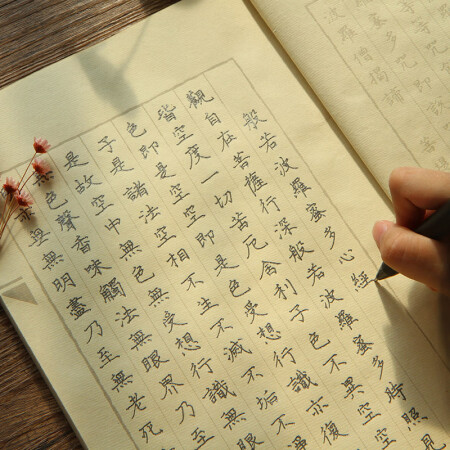 般若波羅蜜多心經
觀自在菩薩行深般若波羅蜜多時照見
皆空度一切苦厄舍利子色不異空空
色即是空空即是色受想行識亦復
子是諸法空相不生不滅不垢不淨
是故空中無色無受想行識無眼
無色聲香味觸法無眼界乃至
無無明盡乃至無老死
蜜多咒即說
波羅僧揭諦